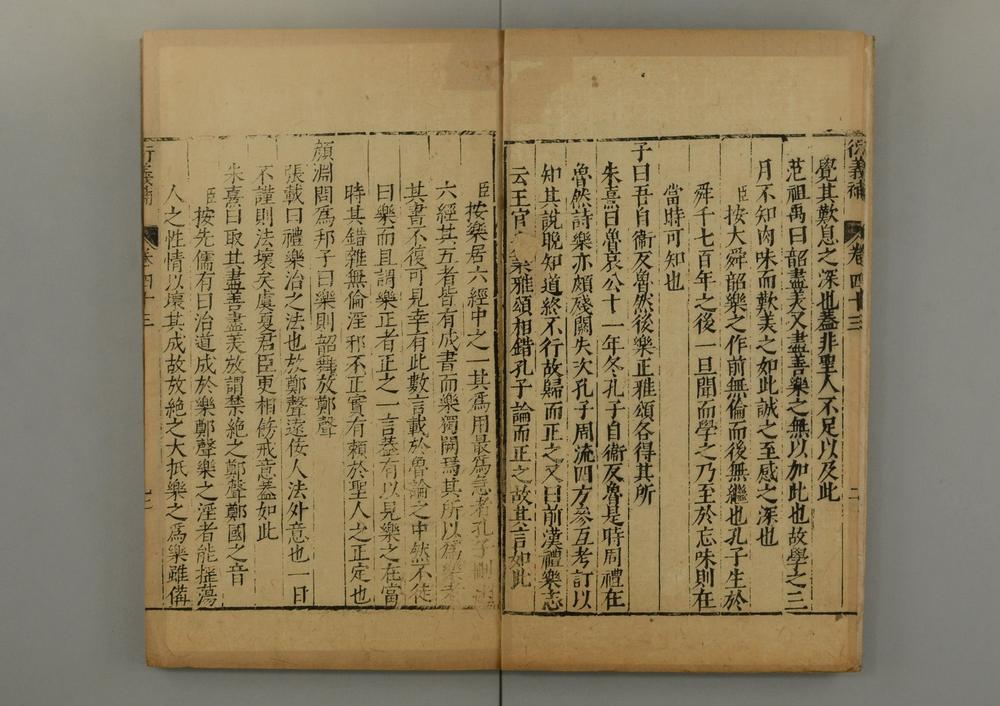 衍義補 卷四十三 二
覺其歎息之深也蓋非聖人不足以及此
范祖禹曰韶盡美又盡善樂之無以加此也故學之三
月不知肉味而歎美之如此誠之至感之深也
臣按大舜韶樂之作前無倫而後無繼也孔子生於
舜千七百年之後一旦聞而學之乃至於忘味則在
當時可知也
子曰吾自衛反魯然後樂正雅頌各得其所
朱熹曰魯哀公十一年冬孔子自衛反魯是時周禮在
魯然詩樂亦頗殘闕失次孔子周流四方參互考訂以
知其說晚知道終不行故歸而正之又曰前漢禮樂志
云王官 業雅頌相錯孔子論而正之故其言如此
臣按樂居六經中之一其爲用最爲急者孔子刪述
六經其五者皆有成書而樂獨闕焉其所以爲樂者
其書不復可見幸有此數言載於魯論之中然不徒
曰樂而且謂樂正者正之一言蓋有以見樂之在當
時其錯雜無倫淫邪不正實有賴於聖人之正定也
顏淵問爲邦子曰樂則韶舞放鄭聲
張載曰禮樂治之法也放鄭聲遠佞人法外意也一日
不謹則法壞矣虞夏君臣更相飭戒意蓋如此
朱熹曰取其盡善盡美放謂禁絕之鄭聲鄭國之音
臣按先儒有曰治道成於樂鄭聲樂之淫者能搖蕩
人之性情以壞其成故放絕之大抵樂之爲樂雖備
衍義補 卷四十三